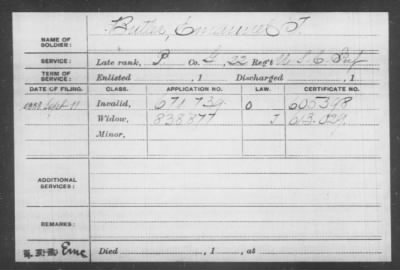 NAME OF SOLDIER: Butler, Emanuel T.
SERVICE: Late rank, P Co. G, 22 Reg't U.S.C. Inf
TERM OF SERVICE: Enlisted , 1 Discharged , 1
DATE OF FILING. CLASS. APPLICATION NO. LAW. CERTIFICATE NO.
1888 Sept 11 Invalid, 671 739 O 605398
Widow, 838877 J 613.029
Minor,
ADDITIONAL SERVICES:
REMARKS:
Died , 1 , at